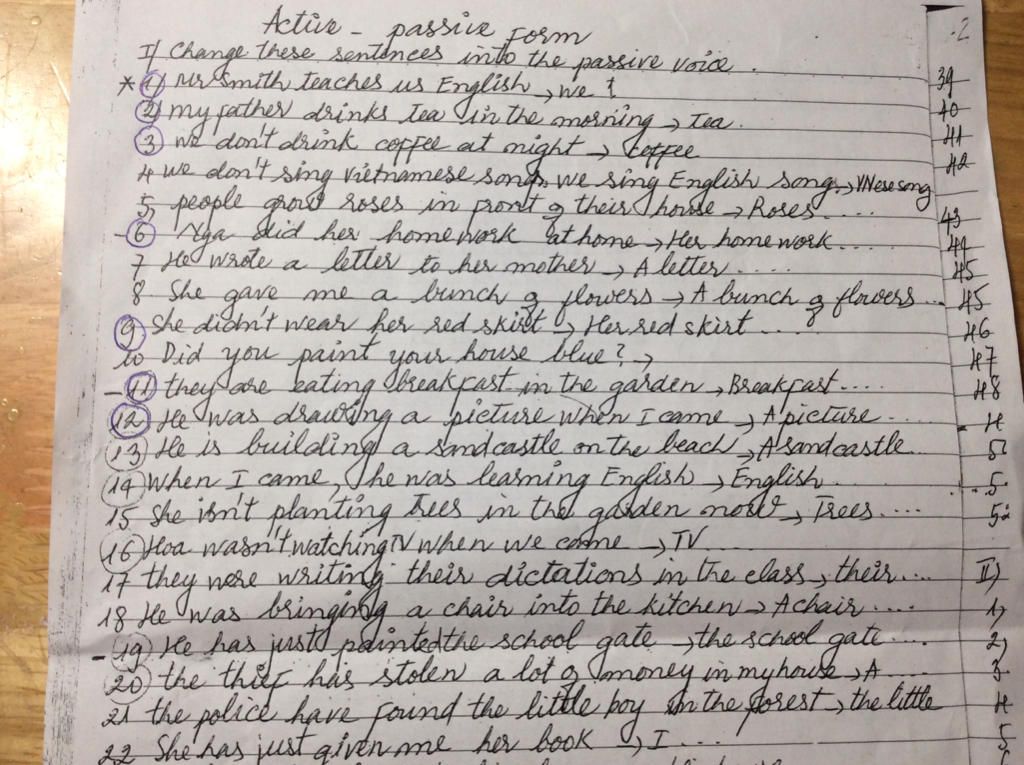 Active - passive Form
I/ Change these sentences into the passive voice.
* 1) Mr Smith teaches us English → we ?
2) my father drinks tea in the morning → Tea.
3 we don't drink coffee at night → coffee
4 we don't sing vietnamese song, we sing English song. → VNese song
5, people grow roses in front of their house → Roses....
- 6 Nga did her homework at home → Her homework....
7 He wrote a letter to her mother → A letter.....
8 She gave me a bunch of flowers → A bunch of flowers...
9 She didn't wear her red skirt → Her red skirt....
10 Did you paint your house blue? →
- 11 they are eating breakfast in the garden → Breakfast....
12 He was drawing a picture when I came → A picture...
13 He is building a sandcastle on the beach → A sandcastle...
14 When I came, he was learning English → English....
15 She isn't planting trees in the garden now → Trees....
16 Hoa wasn't watching TV when we came → TV....
17 they were writing their dictations in the class → their....
18 He was bringing a chair into the kitchen → A chair....
- 19 He has just painted the school gate → the school gate....
20 the thief has stolen a lot of money in my house → A....
21 the police have found the little boy in the forest → the little
22 She has just given me her book → I...
.2
39
40
41
42
43
44
45
45
46
47
48
4
5
5
5
II)
1,
2,
3
4
5